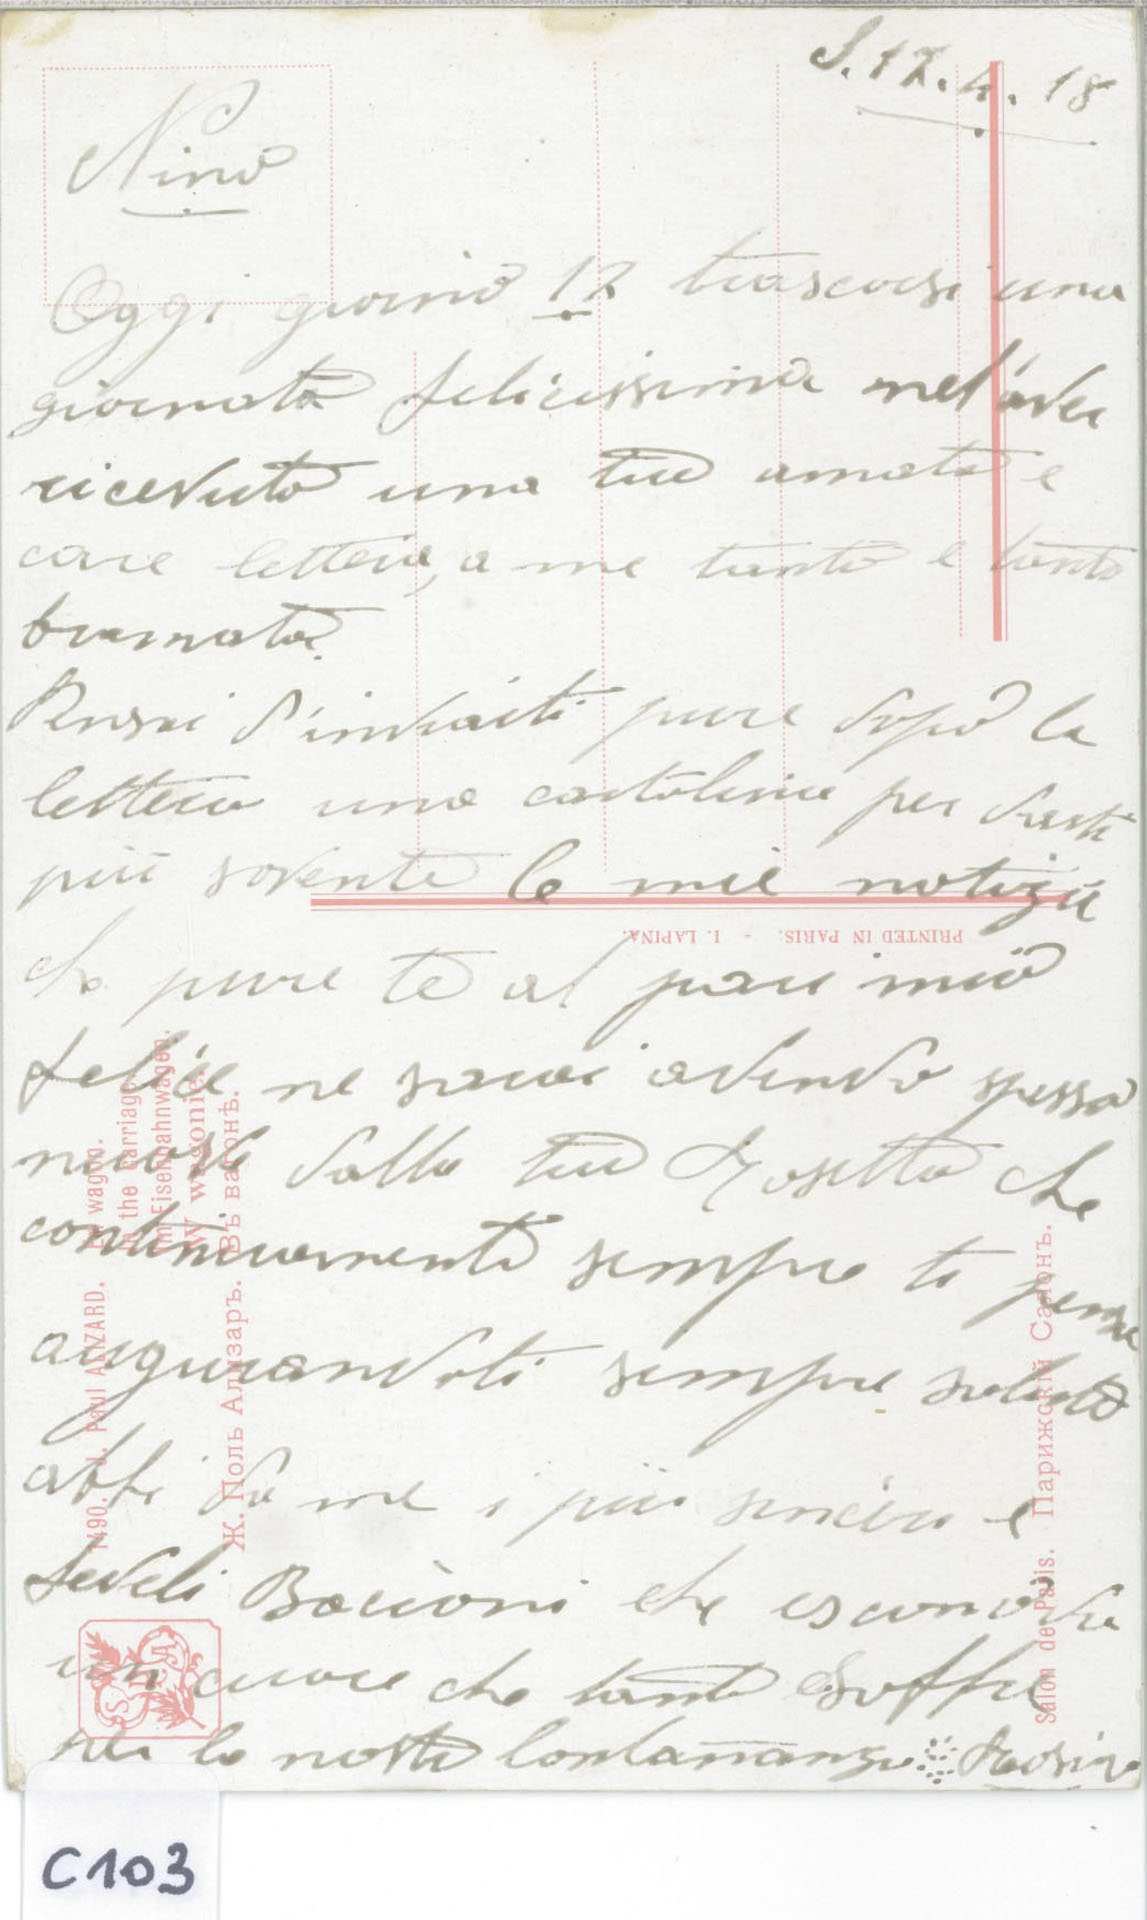 S. 17.4.18
Nino
Oggi giorno 17 trascorsi una
giornata felicissima nel'aver
ricevuto una tua amata e
cara lettera, a me tanto e tanto
bramata.
Pensai d'inviarti pure dopo la
lettera una cartolina per darti
più sovente le mie notizie
pure te al pari mio
felice ne sarai avendo spesso
nuove dalla tua Rosetta che
continuamente sempre ti pensa
augurandoti sempre salute
abbi da me i più sinceri e
fedeli Bacioni che
un cuore che tanto soffre
per la nostra lontananza Rosina
PRINTED IN PARIS. - I. LAPINA.
1490. J. Paul ALIZARD. En wagon.
In the carriage.
Im Eisenbahnwagen.
W wagonie.
Ж. Поль Ализаръ. Въ вагонѣ.
Salon de Paris. Парижскій Салонъ.
C103